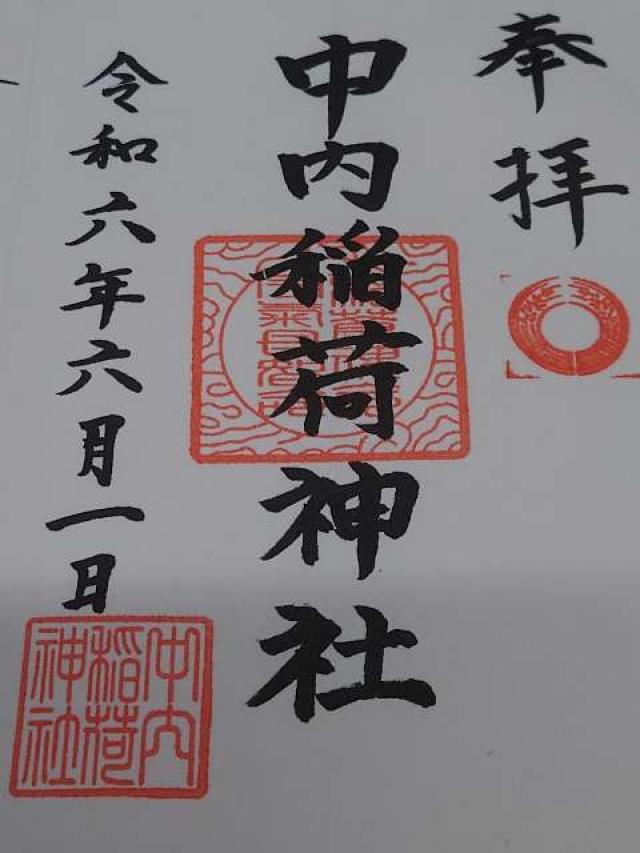 奉拝
中内稲荷神社
令和六年六月一日
中内
稲荷
神社